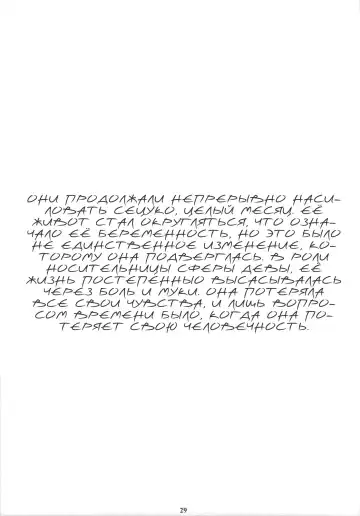 ОНИ ПРОДОЛЖАЛИ НЕПРЕРЫВНО НАСИ-
ЛОВАТЬ СЕЦУКО, ЦЕЛЫЙ МЕСЯЦ. ЕЁ
ЖИВОТ СТАЛ ОКРУГЛЯТЬСЯ, ЧТО ОЗНА-
ЧАЛО ЕЁ БЕРЕМЕННОСТЬ, НО ЭТО БЫЛО
НЕ ЕДИНСТВЕННОЕ ИЗМЕНЕНИЕ, КО-
ТОРОМУ ОНА ПОДВЕРГЛАСЬ. В РОЛИ
НОСИТЕЛЬНИЦЫ СФЕРЫ ДЕВЫ, ЕЁ
ЖИЗНЬ ПОСТЕПЕННЫО ВЫСАСЫВАЛАСЬ
ЧЕРЕЗ БОЛЬ И МУКИ. ОНА ПОТЕРЯЛА
ВСЕ СВОИ ЧУВСТВА, И ЛИШЬ ВОПРО-
СОМ ВРЕМЕНИ БЫЛО, КОГДА ОНА ПО-
ТЕРЯЕТ СВОЮ ЧЕЛОВЕЧНОСТЬ.
29